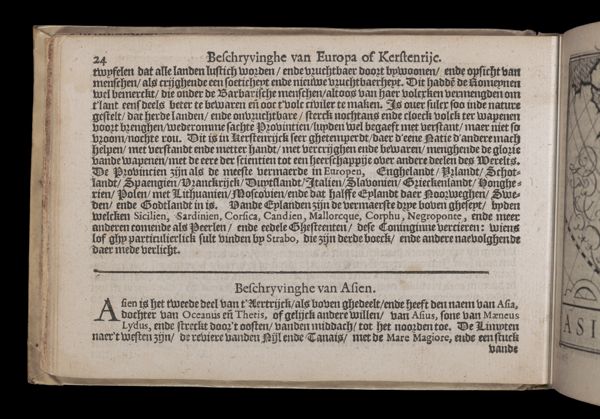 24
Beschryvinghe van Europa of Kerstenrijc.
twyfelen dat alle landen lustich worden / ende vruchtbaer doort bywoonen / ende opsicht van
menschen / als crijghende een soeticheyt ende nieuwe vruchtbaerheyt. Dit haddē de Romeynen
wel bemerckt / die onder de Barbarische menschen / altoos van haer volcrken vermengden om
t'lant eensdeels beter te bewaren eñ ooc t'volc civiler te maken. Is over sulcx soo inde nature
gestelt / dat herde landen / ende onvruchtbare / sterck nochtans ende cloeck volck ter wapenen
voort brenghen / wederomme sachte Provintien / luyden wel begaeft met verstant / maer niet so
vroom / nochte rou. Dit is in Kerstenrijck seer ghetemperdt / daer d'eene Natie d'ander mach
helpen / met verstandt ende metter handt / met vercrijghen ende bewaren / meughende de glorie
vande wapenen / met de eere der scientien tot een heerschappije over andere deelen des Werelts.
De Provincien zijn als de meeste vermaerde in Europen, Enghelandt / Yrlandt / Schot-
landt / Spaengien / Vranckrijck / Duytslandt / Italien / Slavonien / Grieckenlandt / Honghe-
rien / Polen / met Lithuanien / Moscovien / ende dat halffe Eylandt daer Noorweghen / Swe-
den / ende Godtlandt in is. Vande Eylanden zijn de vermaerste dry boven gheseyt / byden
welcken Sicilien, Sardinien, Corsica, Candien, Mallorcque, Corphu, Negroponte, ende meer
anderen comende als Peerlen / ende eedele Ghesteenten / dese Coninginne vercieren: wiens
lof ghy particulierlick sult vinden by Strabo, die zijn derde boeck / ende andere naevolghende
daer mede verlicht.
Beschryvinghe van Asien.
Asien is het tweede deel van t'Aertrijck / als boven ghedeelt / ende heeft den naem van Asia,
dochter van Oceanus eñ Thetis, of gelijck andere willen / van Asius, sone van Mæneus
Lydus, ende streckt door't oosten / vanden middach / tot het noorden toe. De Limyten
naer't westen zijn / de reviere vanden Nijl ende Tanais / met de Mare Magiore, ende een stuck
vande
ASI